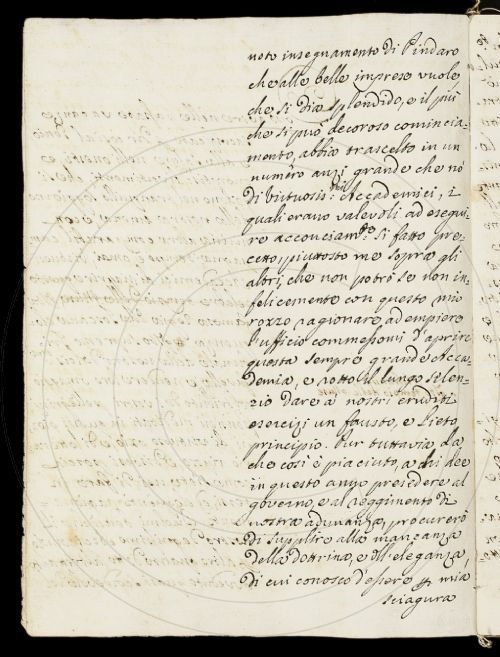 noto insegnamento di Pindaro
che alle belle imprese vuole
che si dia splendido, e il più
che si può decoroso comincia-
mento, abbia trascelto in un
numero anzi grande che nò
di Virtuosis:mi Accademici, i
quali erano valevoli ad esegui-
re acconciam:te si fatto pre-
cetto, piuttosto me sopra gli
altri, che non potrò se non in-
felicemente con questo mio
rozzo ragionare ad empiere
l'ufficio commessomi d'aprire
questa sempre grande Acca-
demia, e rotto il lungo silen-
zio dare a nostri eruditi
esercizj un fausto, e lieto
principio. Pur tuttavia da
che così è piaciuto, a chi dee
in questo anno presidere al
governo, e al reggimento di
nostra adunanza, procurerò
di supplire alla mancanza
della dottrina, e dell'eleganza,
di cui conosco d'essere p mia
sciagura